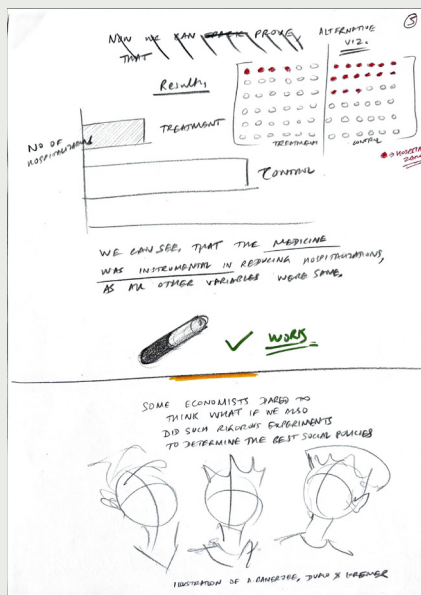 5
NOW WE CAN PROVE
THAT
ALTERNATIVE
VIZ.
Results
NO OF
HOSPITALIZATIONS
TREATMENT
CONTROL
TREATMENT
CONTROL
WE CAN SEE, THAT THE MEDICINE
WAS INSTRUMENTAL IN REDUCING HOSPITALIZATIONS,
AS ALL OTHER VARIABLES WERE SAME.
WORKS
SOME ECONOMISTS DARED TO
THINK WHAT IF WE ALSO
DID SUCH RIGOROUS EXPERIMENTS
TO DETERMINE THE BEST SOCIAL POLICIES
ILLUSTRATION OF A. BANERJEE, DUFLO & KREMER